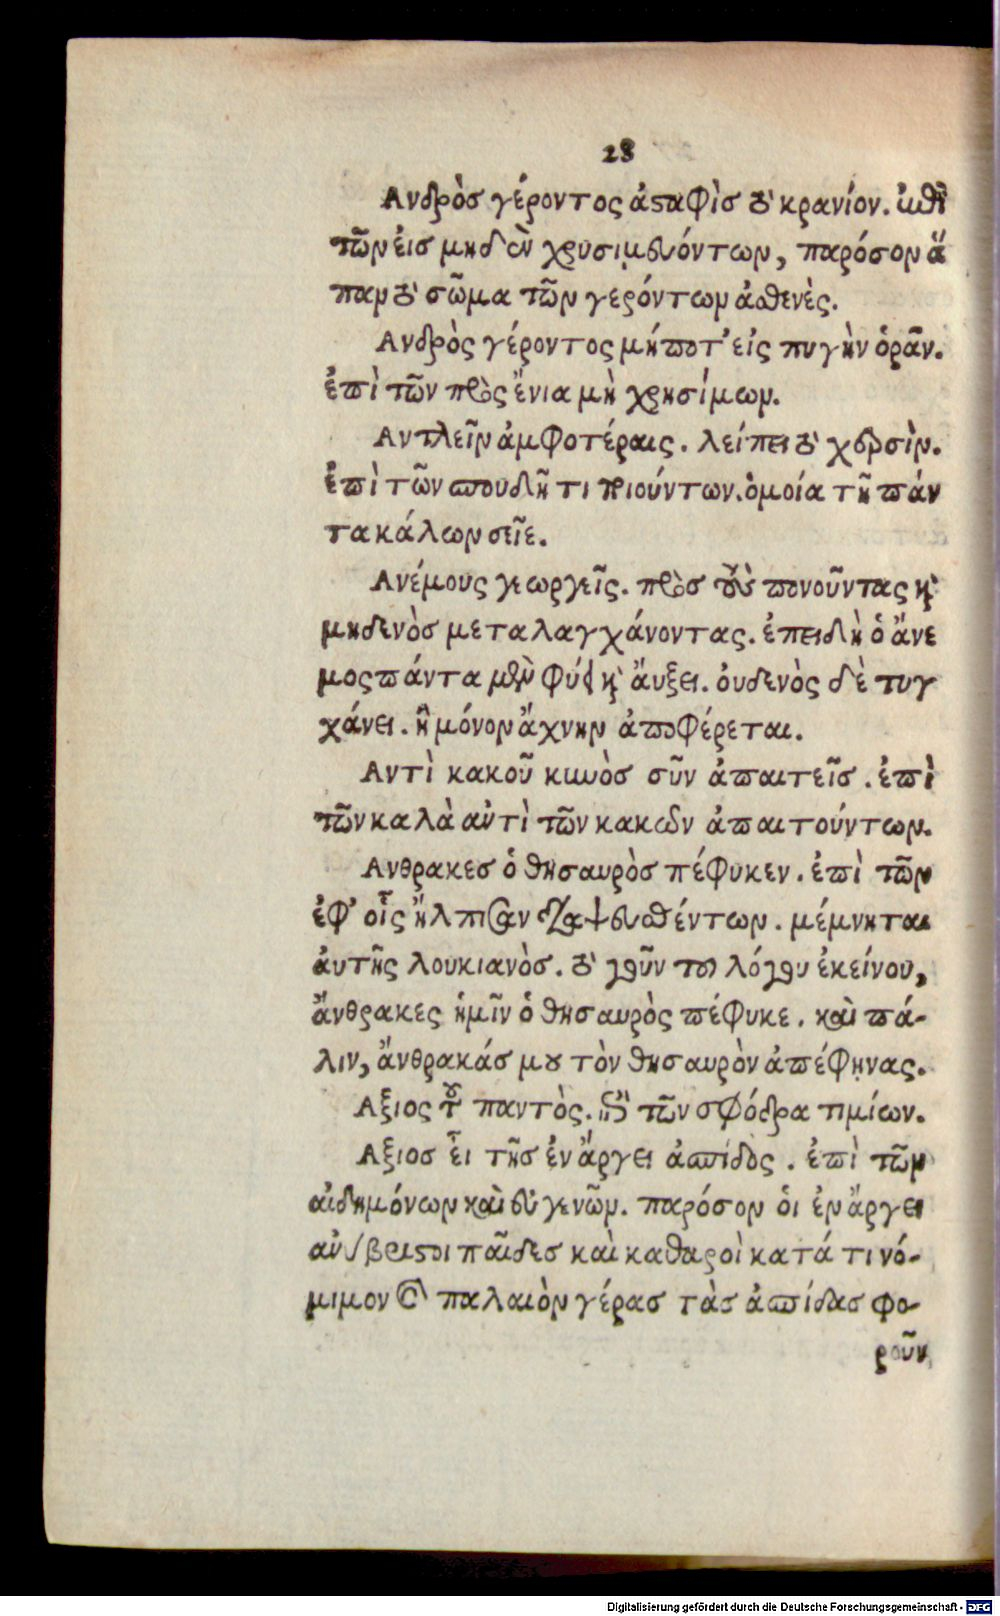 28
Ανδρὸσ γέροντος ἀσταφὶσ τὸ κρανίον. ἐπὶ
τῶν εἰσ μηδὲν χρησιμευόντων, παρόσον ἅ
παν τὸ σῶμα τῶν γερόντων ἀσθενὲς.
Ανδρὸς γέροντος μήποτ' εἰς πυγὴν ὁρᾶν.
ἐπὶ τῶν πρὸς ἔνια μὴ χρησίμων.
Αντλεῖν ἀμφοτέραις. λείπει τὸ χερσὶν.
ἐπὶ τῶν σπουδῆ τι ποιούντων. ὁμοία τῆ πάν
τα κάλων σεῖε.
Ανέμους γεωργεῖς. πρὸσ τοὺς πονοῦντας καὶ
μηδενὸσ μεταλαγχάνοντας. ἐπειδὴ ὁ ἄνε
μος πάντα μὲν φύει καὶ ἄυξει. ὀυδενὸς δὲ τυγ
χάνει. ἢ μόνον ἄχνην ἀποφέρεται.
Αντὶ κακοῦ κυνὸσ σῦν ἀπαιτεῖσ. ἐπὶ
τῶν καλὰ ἀντὶ τῶν κακῶν ἀπαιτούντων.
Ανθρακεσ ὁ θησαυρὸσ πέφυκεν. ἐπὶ τῶν
ἐφ' οἷς ἤλπισαν διαψευσθέντων. μέμνηται
ἀυτῆς λουκιανὸσ. τὸ γοῦν τοῦ λόγου ἐκείνου,
ἄνθρακες ἡμῖν ὁ θησαυρὸς πέφυκε. καὶ πά-
λιν, ἄνθρακάσ μου τὸν θησαυρὸν ἀπέφηνας.
Αξιος τοῦ παντὸς. ἐπὶ τῶν σφόδρα τιμίων.
Αξιοσ εἶ τῆσ ἐν ἄργει ἀσπίδος. ἐπὶ τῶν
αἰδημόνων καὶ εὐγενῶν. παρόσον ὁι ἐν ἄργει
ἀνύβριστοι παῖδεσ καὶ καθαροὶ κατά τι νό-
μιμον καὶ παλαιὸν γέρασ τὰσ ἀσπίδασ φο-
ροῦν
Digitalisierung gefördert durch die Deutsche Forschungsgemeinschaft - DFG